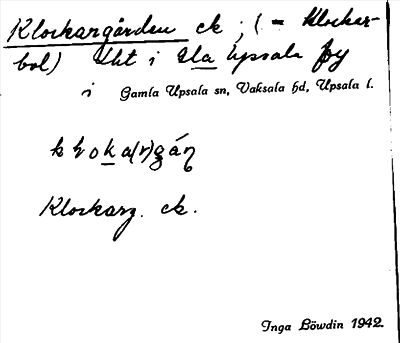 Klockargården ek ; (= Klockar-
bol) Uht i Gla Upsala by
i Gamla Upsala sn, Vaksala hd, Upsala l.
Klockarg. ek.
Inga Löwdin 1942.